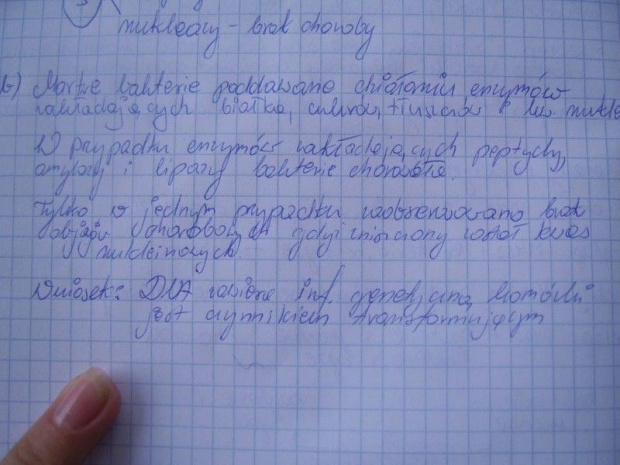 nukleazy - brak choroby
b) Martwe bakterie poddawano działaniu enzymów
rozkładających białka, cukrów, tłuszczów i kw. nukle
W przypadku enzymów rozkładających peptydy,
amylazy i lipazy bakterie chorowała.
Tylko w jednym przypadku zaobserwowano brak
objawów chorobowych gdy zniszczony został kwas
nukleinowych.
Wniosek: DNA zawiera inf. genetyczną komórki
jest czynnikiem transformującym